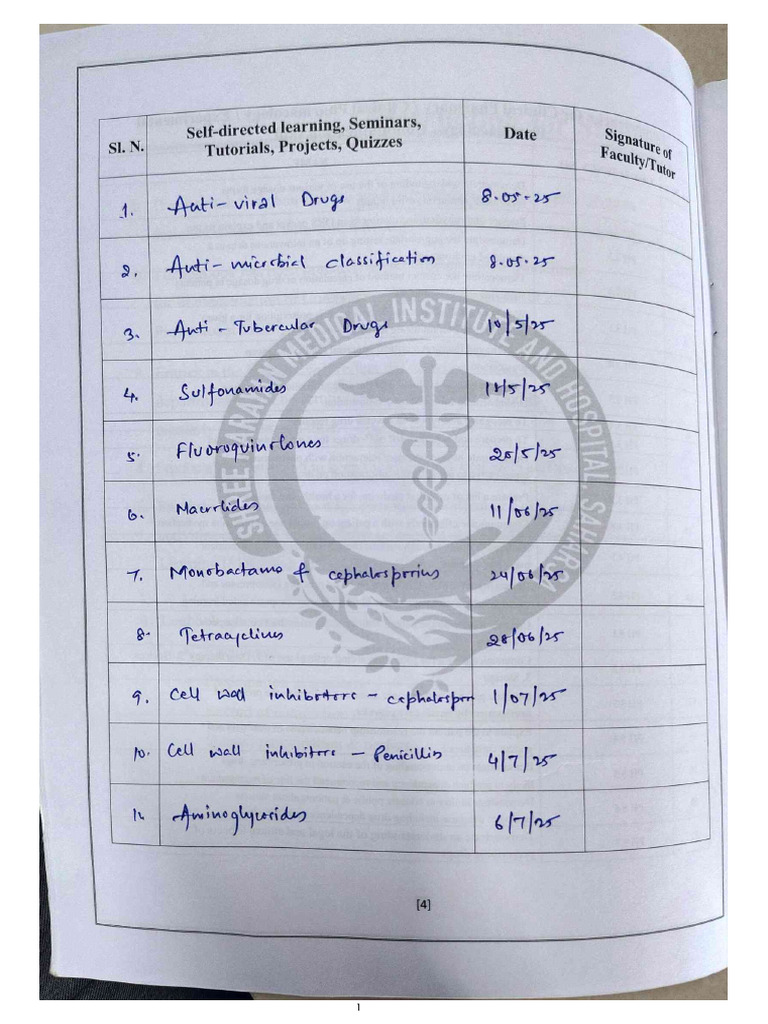 Sl. N. Self-directed learning, Seminars, Tutorials, Projects, Quizzes Date Signature of Faculty/Tutor
1. Anti-viral Drugs 8.05.25
2. Anti-microbial classification 8.05.25
3. Anti-Tubercular Drugs 10/5/25
4. Sulfonamides /5/25
5. Fluoroquinolones /5/25
6. Macrolides 11/06/25
7. Monobactams & cephalosporins 24/06/25
8. Tetracyclines 28/06/25
9. Cell wall inhibitors - cephalospor 1/07/25
10. Cell wall inhibitors - Penicillin 4/7/25
Aminoglycosides 6/7/25
SHREE NARAYAN MEDICAL INSTITUTE AND HOSPITAL, SAHARSA
[4]
1